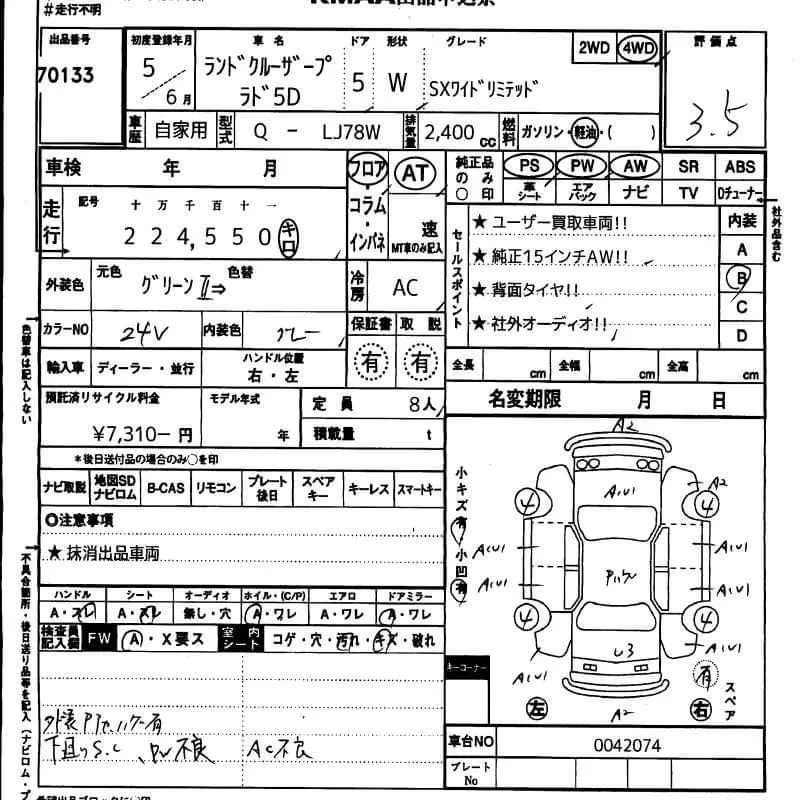 #走行不明
出品番号
70133
初度登録年月
5
6月
車名
ランドクルーザープ
ラド5D
ドア
5
形状
W
グレード
SXワイドリミテッド
2WD
4WD
評価点
3.5
車歴
自家用
型式
Q - LJ78W
排気量
2,400cc
燃料
ガソリン・軽油・( )
車検 年 月
フロア・コラム・インパネ
AT
速
MT車のみ記入
純正品のみ○印
PS PW AW SR ABS
革シート エアバック ナビ TV Dチューナー
社外品含む
走行
記号 十 万 千 百 十 一
224,550 キロ
セールスポイント
★ ユーザー買取車両!!
★ 純正15インチAW!!
★ 背面タイヤ!!
★ 社外オーディオ!!
内装
A
B
C
D
外装色
元色
グリーンⅡ⇒
色替
冷房
AC
カラーNO
24V
内装色
グレー
保証書 取説
有 有
色替車は記入しない
輸入車
ディーラー・並行
ハンドル位置
右・左
全長 cm 全幅 cm 全高 cm
預託済リサイクル料金
¥7,310-円
モデル年式
年
定員 8人
積載量 t
名変期限 月 日
*後日送付品の場合のみ○を印
ナビ取説 地図SDナビロム B-CAS リモコン プレート後日 スペアキー キーレス スマートキー
◎注意事項
★ 抹消出品車両
ハンドル シート オーディオ ホイル・(C/P) エアロ ドアミラー
A・スレ A・スレ 無し・穴 A・ワレ A・ワレ A・ワレ
検査員記入欄
FW
A・X要ス
室内シート
コゲ・穴・汚れ・キズ・破れ
有
AC不良
小キズ有
小凹有
A2
A2
4
4
4
4
U3
A2
左
右
有
スペア
キーコーナー
車台NO
0042074
プレートNo